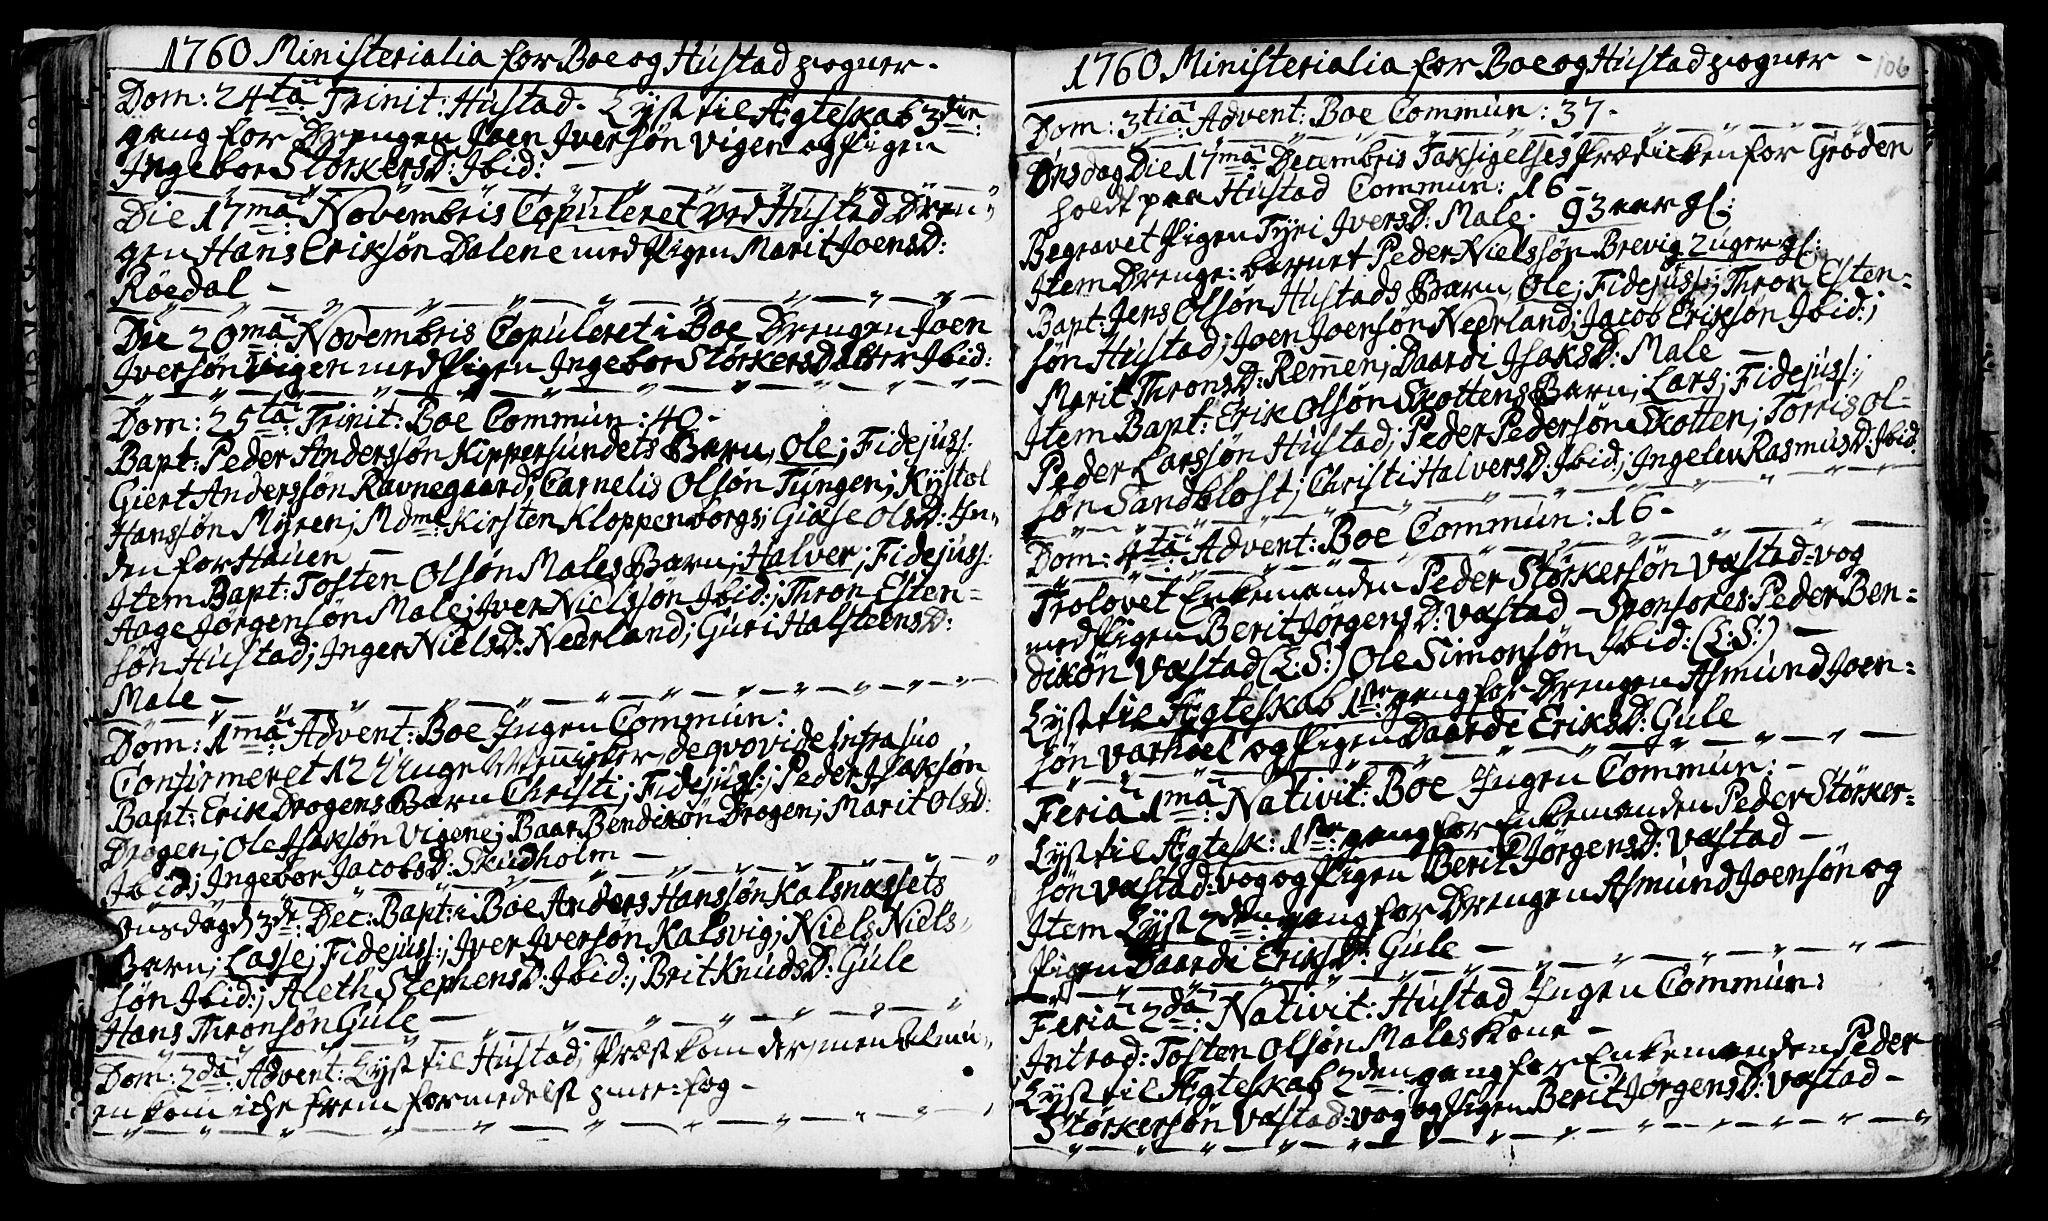 1760 Ministerialia for Boe og Hustad sogner -
Dom: 24ta Trinit: Hustad. Lyst til Ægteskab 3die
gang for Drengen Joen Jversøn Vigen og Pigen
Jngebor StørkersD: Jbid: -
Die 17ma Novembris Copuleret ved Hustad Dren-
gen Hans Eriksøn Dalene med Pigen Marit JoensD:
Røedal -
Die 20ma Novembris Copuleret i Boe Drengen Joen
Jversøn Vigen med Pigen Jngebor StørkersDatter Jbid:
Dom: 25ta Trinit: Boe Commun: 40 -
Bapt: Peder Anderssøn Kippersundets Barn, Ole; Fidejuss:
Giert Anderssøn Ravnegaard; Carnelis Olsøn Tungen; Kystol
Hanssøn Myren; Mdme Kirsten Kloppenborgs; Giøse OlsD: Jn-
den for Hauen -
Jtem Bapt: Tosten Olsøn Males Barn; Halver; Fidejuss:
Aage Jørgensøn Male; Jver Nielssøn Jbid:; Thron Esten-
søn Hustad; Jnger NielsD: Neerland; Guri HalsteensD:
Male -
Dom: 1ma Advent: Boe Jngen Commun:
Confirmeret 12 Unge Mennisker, de qvo vide infra suo
Bapt: Erik Drogens Barn Christi; Fidejuss:; Peder Jsaksøn
Drogen; Ole Jsaksøn Vigene; Baar Bendixøn Drogen; Marit OlsD:
Jbid; Jngebor JacobsD: Skudholm -
Onsdag d 3de Dec: Bapt: i Boe Anders Hanssøn Kalsnæssets
Barn; Lasse; Fidejuss:; Jver Jversøn Kalsvig; Niels Niels-
søn Jbid:; Aleth StephensD: Jbid:; Brit KnudsD: Gule
Hans Thronsøn Gule -
Dom: 2da Advent: Lyst til Hustad; Præst kom der, men Almu-
en kom iche frem formedelst snee: fog -
1760 Ministerialia for Boe og Hustad sogner - 106
Dom: 3tia Advent: Boe Commun: 37 -
Onsdag Die 17ma Decembris Taksigelses Prædicken for Grøden
holdt paa Hustad Commun: 16 -
Begravet Pigen Tyri JversD: Male. 93 aar gl:
Jtem Drenge: barnet Peder Nielssøn Brevig 2 uger gl:
Bapt: Jens Olsøn Hustads Barn, Ole; Fidejuss:; Thron Esten-
søn Hustad; Joen Joensøn Neerland; Jacob Eriksøn Jbid:;
Marit ThronsD: Remen; Daardi JsaksD: Male -
Jtem Bapt: Erik Olsøn Skottens Barn; Lars; Fidejuss:;
Peder Larssøn Hustad; Peder Pedersøn Skotten; Torris Ol-
søn Sandblost; Christi HalversD: Jbid:; Jngelev RasmusD: Jbid.
Dom: 4ta Advent: Boe Commun: 16 -
Trolovet Enkemanden Peder Størkersøn Vastad: vog
med Pigen Berit JørgensD: Vastad - Sponsores: Peder Ben-
dixøn Vastad (L:S:) Ole Simonsøn Jbid: (L:S:) -
Lyst til Ægteskab 1ste gang for Drengen Asmund Joen-
søn Varhoel og Pigen Daardi EriksD: Gule
Feria 1ma Nativit: Boe Jngen Commun: -
Lyst til Ægtesk: 1ste gang for Enkemanden Peder Størker-
søn Vastad: vog og Pigen Berit JørgensD: Vastad -
Jtem Lyst 2den gang for Drengen Asmund Joensøn og
Pigen Daardi EriksD: Gule -
Feria 2da Nativit: Hustad Jngen Commun:
Jntrod: Tosten Olsøn Males Kone -
Lyst til Ægteskab 2den gang for Enkemanden Peder
Størkersøn Vastad: vog og Pigen Berit JørgensD: Vastad -